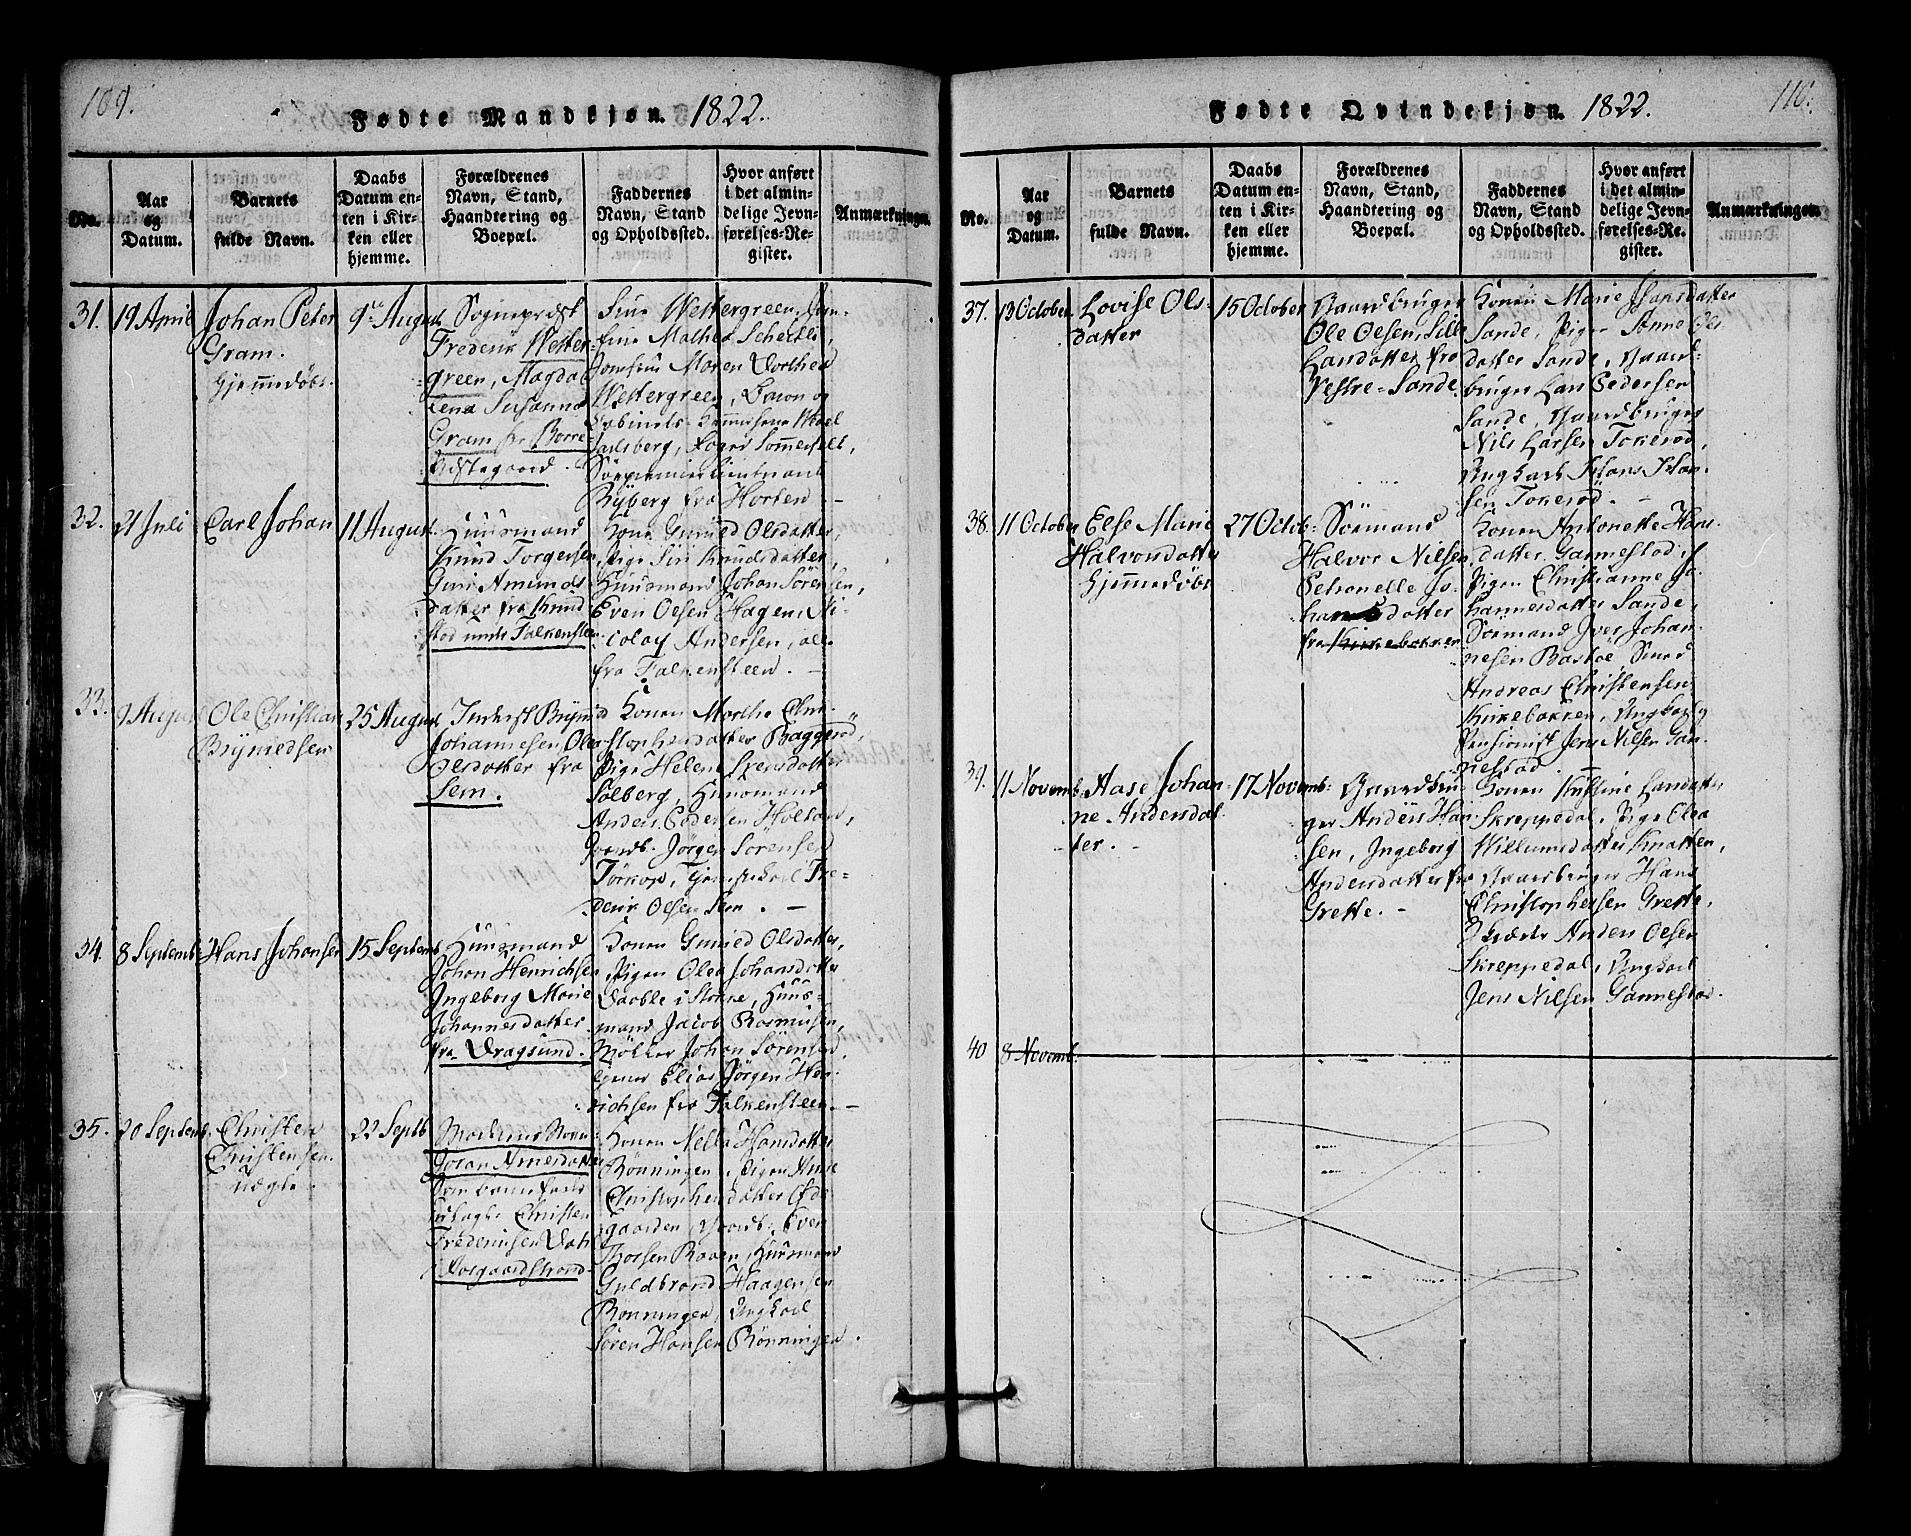 109.
Fødte Mandkjøn. 1822.
No.
Aar
og
Datum.
Barnets
fulde Navn.
Daabs
Datum en-
ten i Kir-
ken eller
hjemme.
Forældrenes
Navn, Stand,
Haandtering og
Boepæl.
Faddernes
Navn, Stand
og Opholdssted.
Hvor anført
i det almin-
delige Jevn-
førelses-Re-
gister.
Anmærkninger.
31. 19 April
Johan Peter
Gram.
Hjemmedøbt.
9de August
Sogneprest
Frederik Wetter-
green, Magda-
lena Susanna
Gram fra Borre
Præstegaard.
Frue Wettergreen, Jom-
frue Mathea Schertli,
Jomfrue Maren Dorthea
Wettergreen, Baron og
Cabinets-Kammerherre Wedel
Jarlsberg, Foged Sommerfelt,
Premierlieutnant
Ryberg fra Horten. -
32. 21 Juli
Carl Johan
11 August
Huusmand
Knud Torgersen
Guri Amunds-
datter fra Knud-
stad under Falkensteen
Kone Gunild Olsdatter,
Pige Siri Knudsdatter,
Huusmand Johan Sörensen,
Even Olsen Hagen, Ni-
colay Andersen, alle
fra Falkensteen. -
33. 9 August
Ole Christian
Bryniedsen
25 August
Inderst Bryniel
Johannesen, Olea
Olsdatter fra
Sem.
Konen Marthe Chri-
stophersdatter Baggerød,
Pige Helene Svensdatter
Solberg, Huusmand
Anders Pedersen Holtan,
Gaardb. Jörgen Sörensen
Torkop, Tjenestekarl Fre-
derik Olsen Sem. -
34. 8 Septemb:
Hans Johansen
15 Septemb
Huusmand
Johan Henrichsen
Ingeborg Marie
Johannesdatter
fra Dragsund.
Konen Gunild Olsdatter,
Pigen Olea Johansdatter
Daable i Stokke, Huus-
mand Jacob Rasmusen,
Møller Johan Sörensen
tjener Elias Jörgen Hen-
richsen fra Falkensteen. -
35. 20 Septemb.
Christen
Christensen.
Uægte.
22 Septb
Moderens Navn:
Joran Arnesdatter
Som barnefader
udlagt Christen
Frederiksen
Aasgaardstrand.
Konen Nella Hansdatter
Rönningen, Pigen Anne
Christophersdatter Öde-
gaarden, Gaardb. Even
Thorsen Raaen, Huusmand
Guldbrand Haagensen
Rönningen, Ungkarl
Sören Hansen Rönningen.
110.
Fødte Qvindekjøn. 1822.
No.
Aar
og
Datum.
Barnets
fulde Navn.
Daabs
Datum en-
ten i Kir-
ken eller
hjemme.
Forældrenes
Navn, Stand,
Haandtering og
Boepæl.
Faddernes
Navn, Stand
og Opholdssted.
Hvor anført
i det almin-
delige Jevn-
førelses-Re-
gister.
Anmærkninger.
37. 13 October.
Lovise Ols-
datter
15 October
Gaardbruger
Ole Olsen, Sille
Larsdatter fra
Vestre-Sande.
Konen Marie Hansdatter
Sande, Pigen Anne Ols-
datter Sande, Gaard-
bruger Lars Pedersen
Sande, Gaardbruger
Nils Larsen Tokerød,
Ungkarl Hans Han-
sen Tokerød. -
38. 11 October
Else Marie
Halvorsdatter
Hjemmedøbt
27 Octob:
Sömand
Halvor Nilsen,
Petronelle Jo-
hannesdatter
fra Kirkebakken
Konen Antonette Hans-
datter Gannestad,
Pigen Christianne Jo-
hannesdatter Sande,
Sömand Iver Johan-
nesen Bastöe, Smed
Andreas Christensen
Kirkebakken, Ungkarl og
Pensionist Jens Nilsen Gan-
nestad. -
39. 11 Novemb.
Aase Johan-
ne Andersdat-
ter. -
17 Novemb:
Gaardbru-
ger Anders Han-
sen, Ingeborg
Andersdatter fra
Grette. -
Konen Kirstine Larsdatter
Skreppedal, Pige Olea
Willumsdatter Knatten,
Gaardbruger Hans
Christophersen Grette,
Anders Olsen
Skreppedal, Ungkarl
Jens Nilsen Gannestad.
40 8 Novemb.